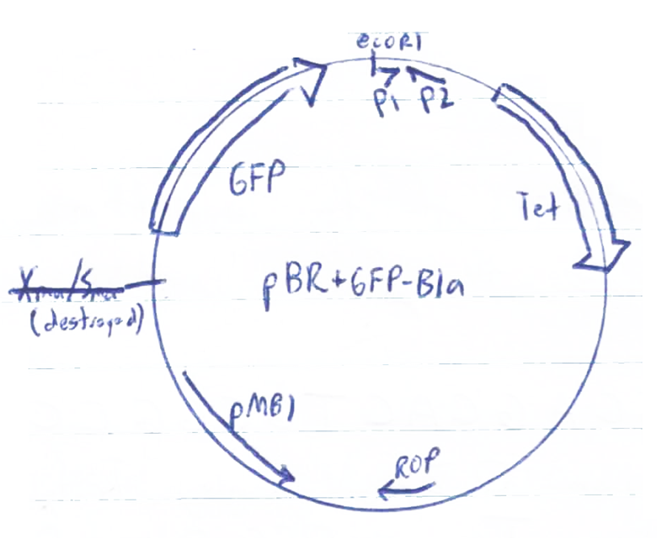 ecoRI
P1 P2
GFP
Tet
Xma/Sma
(destroyed)
pBR+GFP-Bla
pMB1
ROP